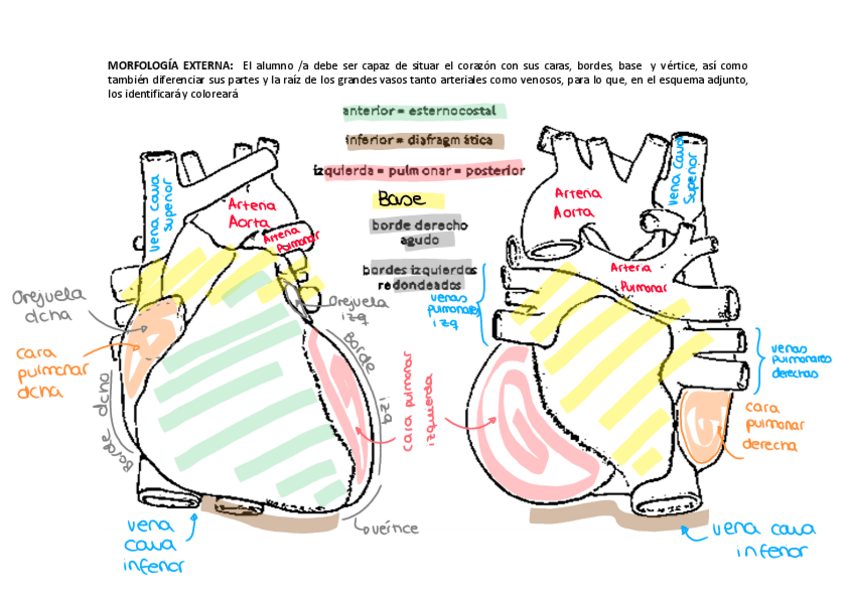 MORFOLOGÍA EXTERNA: El alumno /a debe ser capaz de situar el corazón con sus caras, bordes, base y vértice, así como
también diferenciar sus partes y la raíz de los grandes vasos tanto arteriales como venosos, para lo que, en el esquema adjunto,
los identificará y coloreará
anterior = esternocostal
inferior = diafragmática
izquierda = pulmonar = posterior
Base
borde derecho
agudo
bordes izquierdos
redondeados
vena cava
Superior
Arteria
Aorta
Arteria
Pulmonar
Orejuela
dcha
Orejuela
izq
cara
pulmonar
dcha
Borde dcho
Borde
izq
cara pulmonar
izquierda
vértice
vena
cava
inferior
Arteria
Aorta
Vena Cava
Superior
Arteria
Pulmonar
venas
pulmonares
izq
venas
pulmonares
derechas
cara
pulmonar
derecha
vena cava
inferior